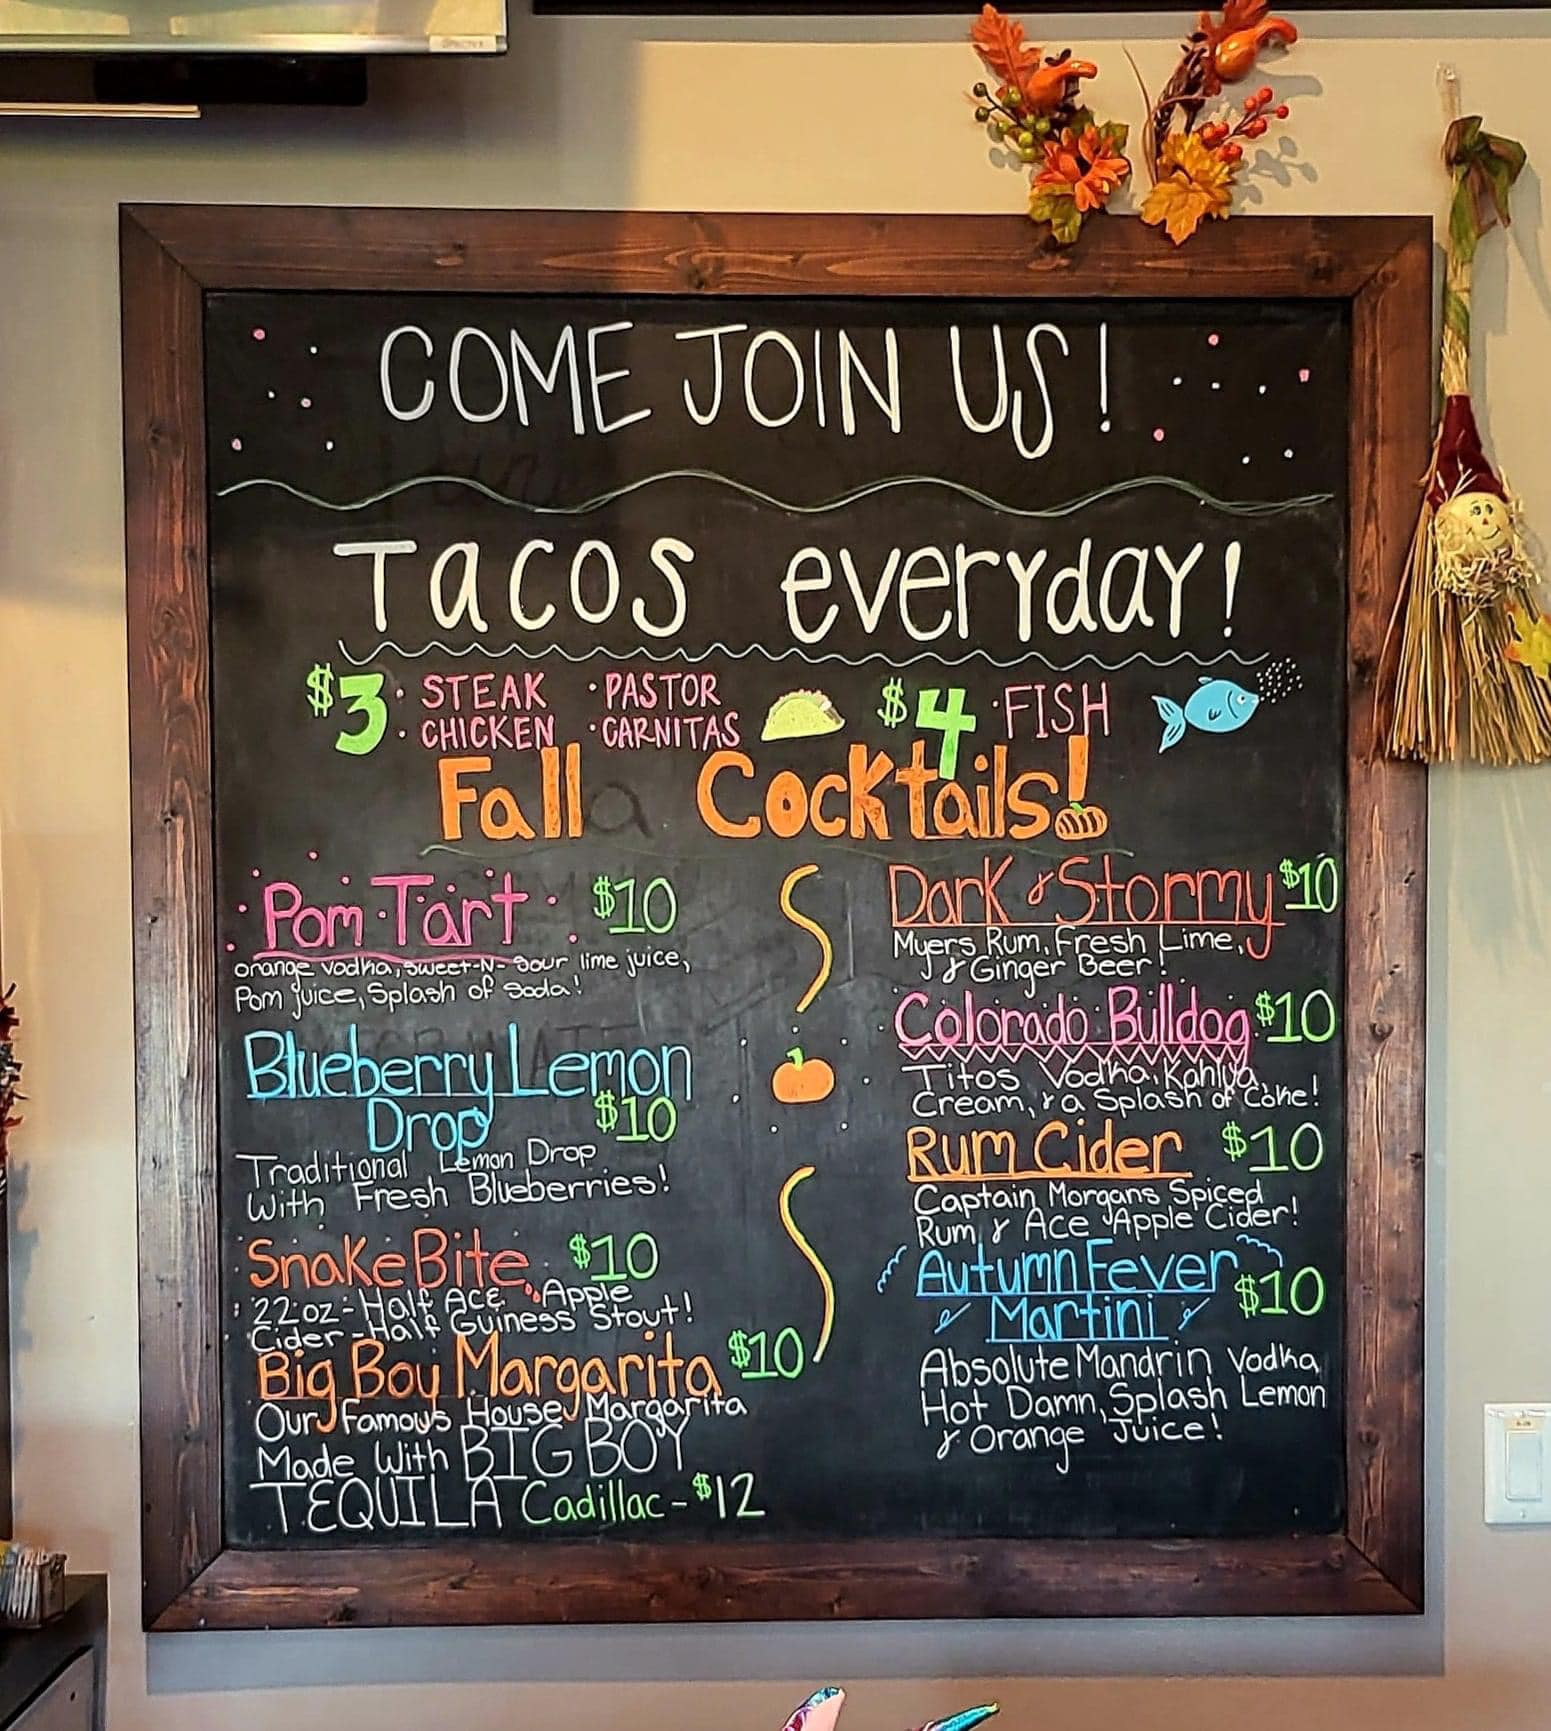 COME JOIN US!
TACOS everyday!
$3 · STEAK · PASTOR
· CHICKEN · CARNITAS
$4 · FISH
Fall Cocktails!
Pom Tart $10
orange vodka, sweet-N-sour lime juice,
Pom juice, Splash of Soda!
Blueberry Lemon
Drop $10
Traditional Lemon Drop
With Fresh Blueberries!
Snake Bite $10
22 oz - Half ACE Apple
Cider - Half Guiness Stout!
Big Boy Margarita $10
Our Famous House Margarita
Made With BIG BOY
TEQUILA Cadillac - $12
Dark & Stormy $10
Myers Rum, Fresh Lime,
& Ginger Beer!
Colorado Bulldog $10
Titos Vodka, Kahlua,
Cream, & a Splash of Coke!
Rum Cider $10
Captain Morgans Spiced
Rum & Ace Apple Cider!
Autumn Fever
Martini $10
Absolute Mandrin Vodka
Hot Damn, Splash Lemon
& Orange Juice!